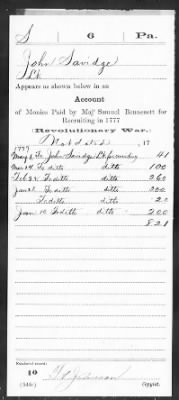 S 6 Pa.
John Sandge
Appears as shown below in an
Account
of Monies Paid by Maj'r Samuel Benezett for
Recruiting in 1777
Revolutionary War.
Not dated, 17
1777
May 8 To John Sandge Lt for 41
Mar 24 To ditto ditto 100
Feb 24 To ditto ditto 260
Jan 21 To ditto ditto 200
To ditto ditto 20
Jan 10 To ditto ditto 200
821
Number of record:
10
Johnson
Copyist.